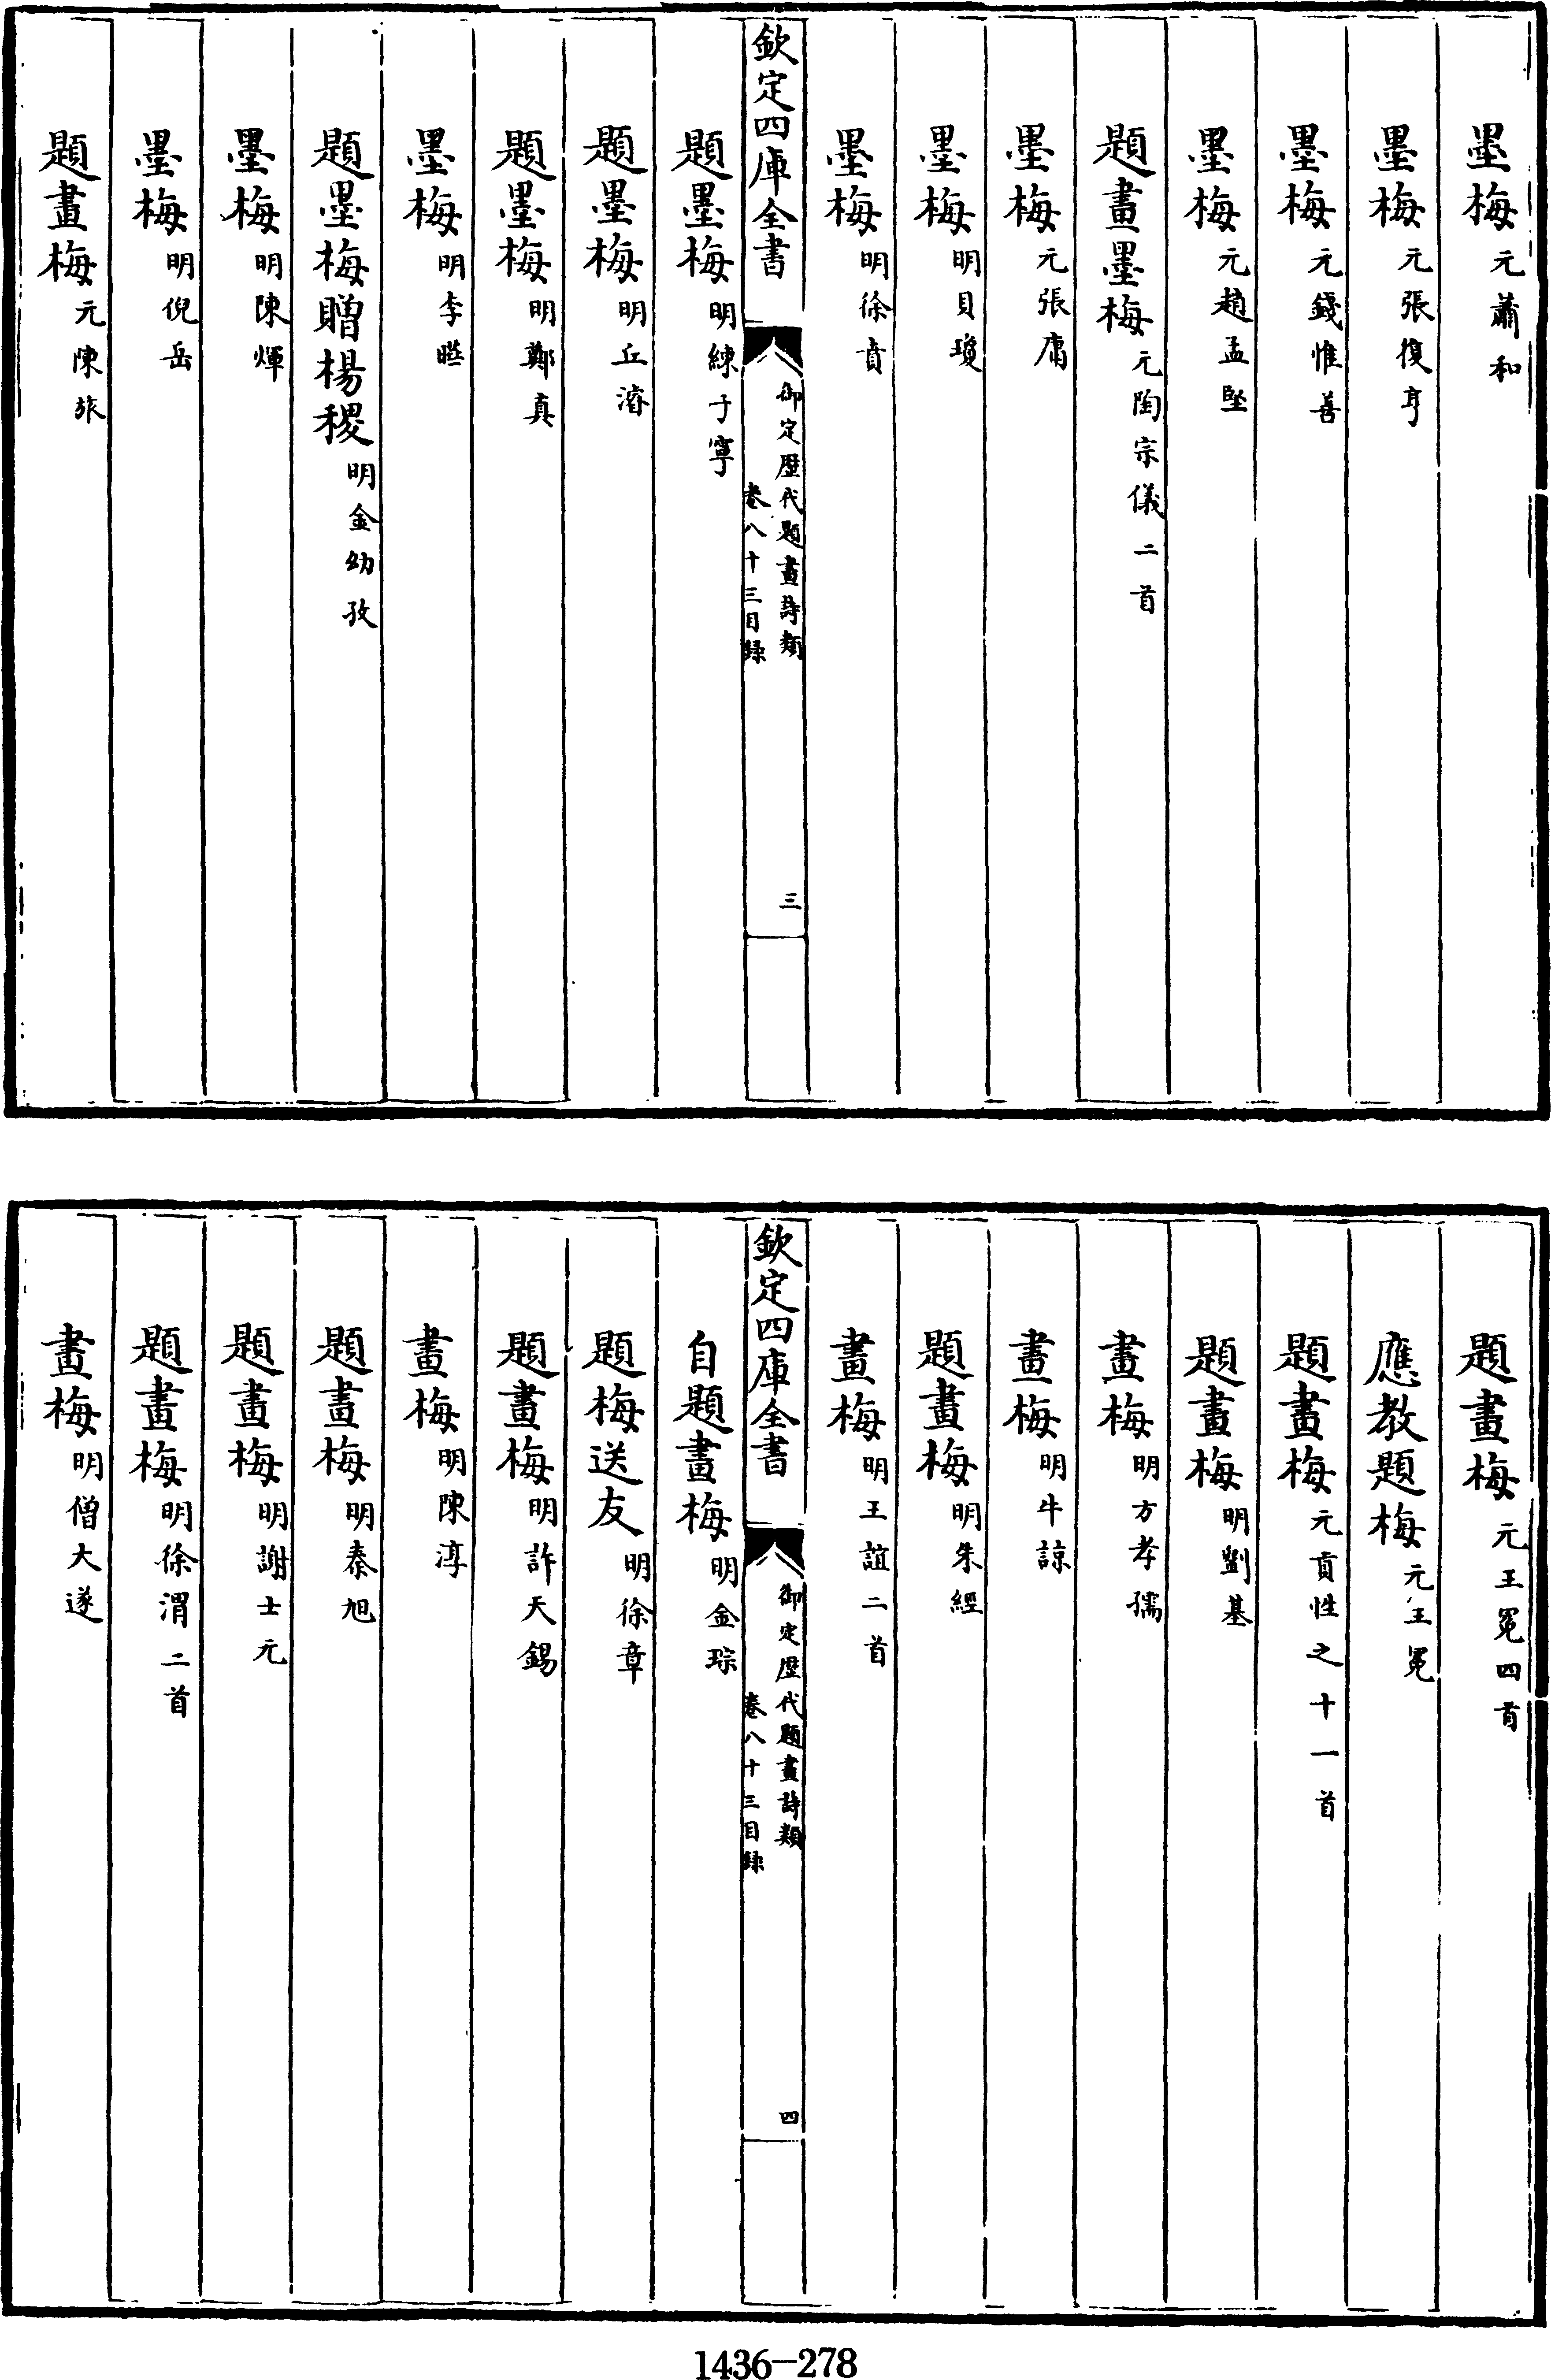 墨梅元蕭和
墨梅元張復亨
墨梅元錢惟善
墨梅元趙孟堅
題畫墨梅元陶宗儀二首
墨梅元張庸
墨梅明貝瓊
墨梅明徐賁
欽定四庫全書
御定歷代題畫詩類
卷八十三目録
三
題墨梅明練子寧
題墨梅明丘濬
題墨梅明鄭真
墨梅明李曄
題墨梅贈楊稷明金幼孜
墨梅明陳煇
墨梅明倪岳
題畫梅元陳旅
題畫梅元王冕四首
應教題梅元王冕
題畫梅元貢性之十一首
題畫梅明劉基
畫梅明方孝孺
畫梅明牛諒
題畫梅明朱經
畫梅明王誼二首
欽定四庫全書
御定歷代題畫詩類
卷八十三目録
四
自題畫梅明金琮
題梅送友明徐章
題畫梅明許天錫
畫梅明陳淳
題畫梅明秦旭
題畫梅明謝士元
題畫梅明徐渭二首
畫梅明僧大遂
1436-278